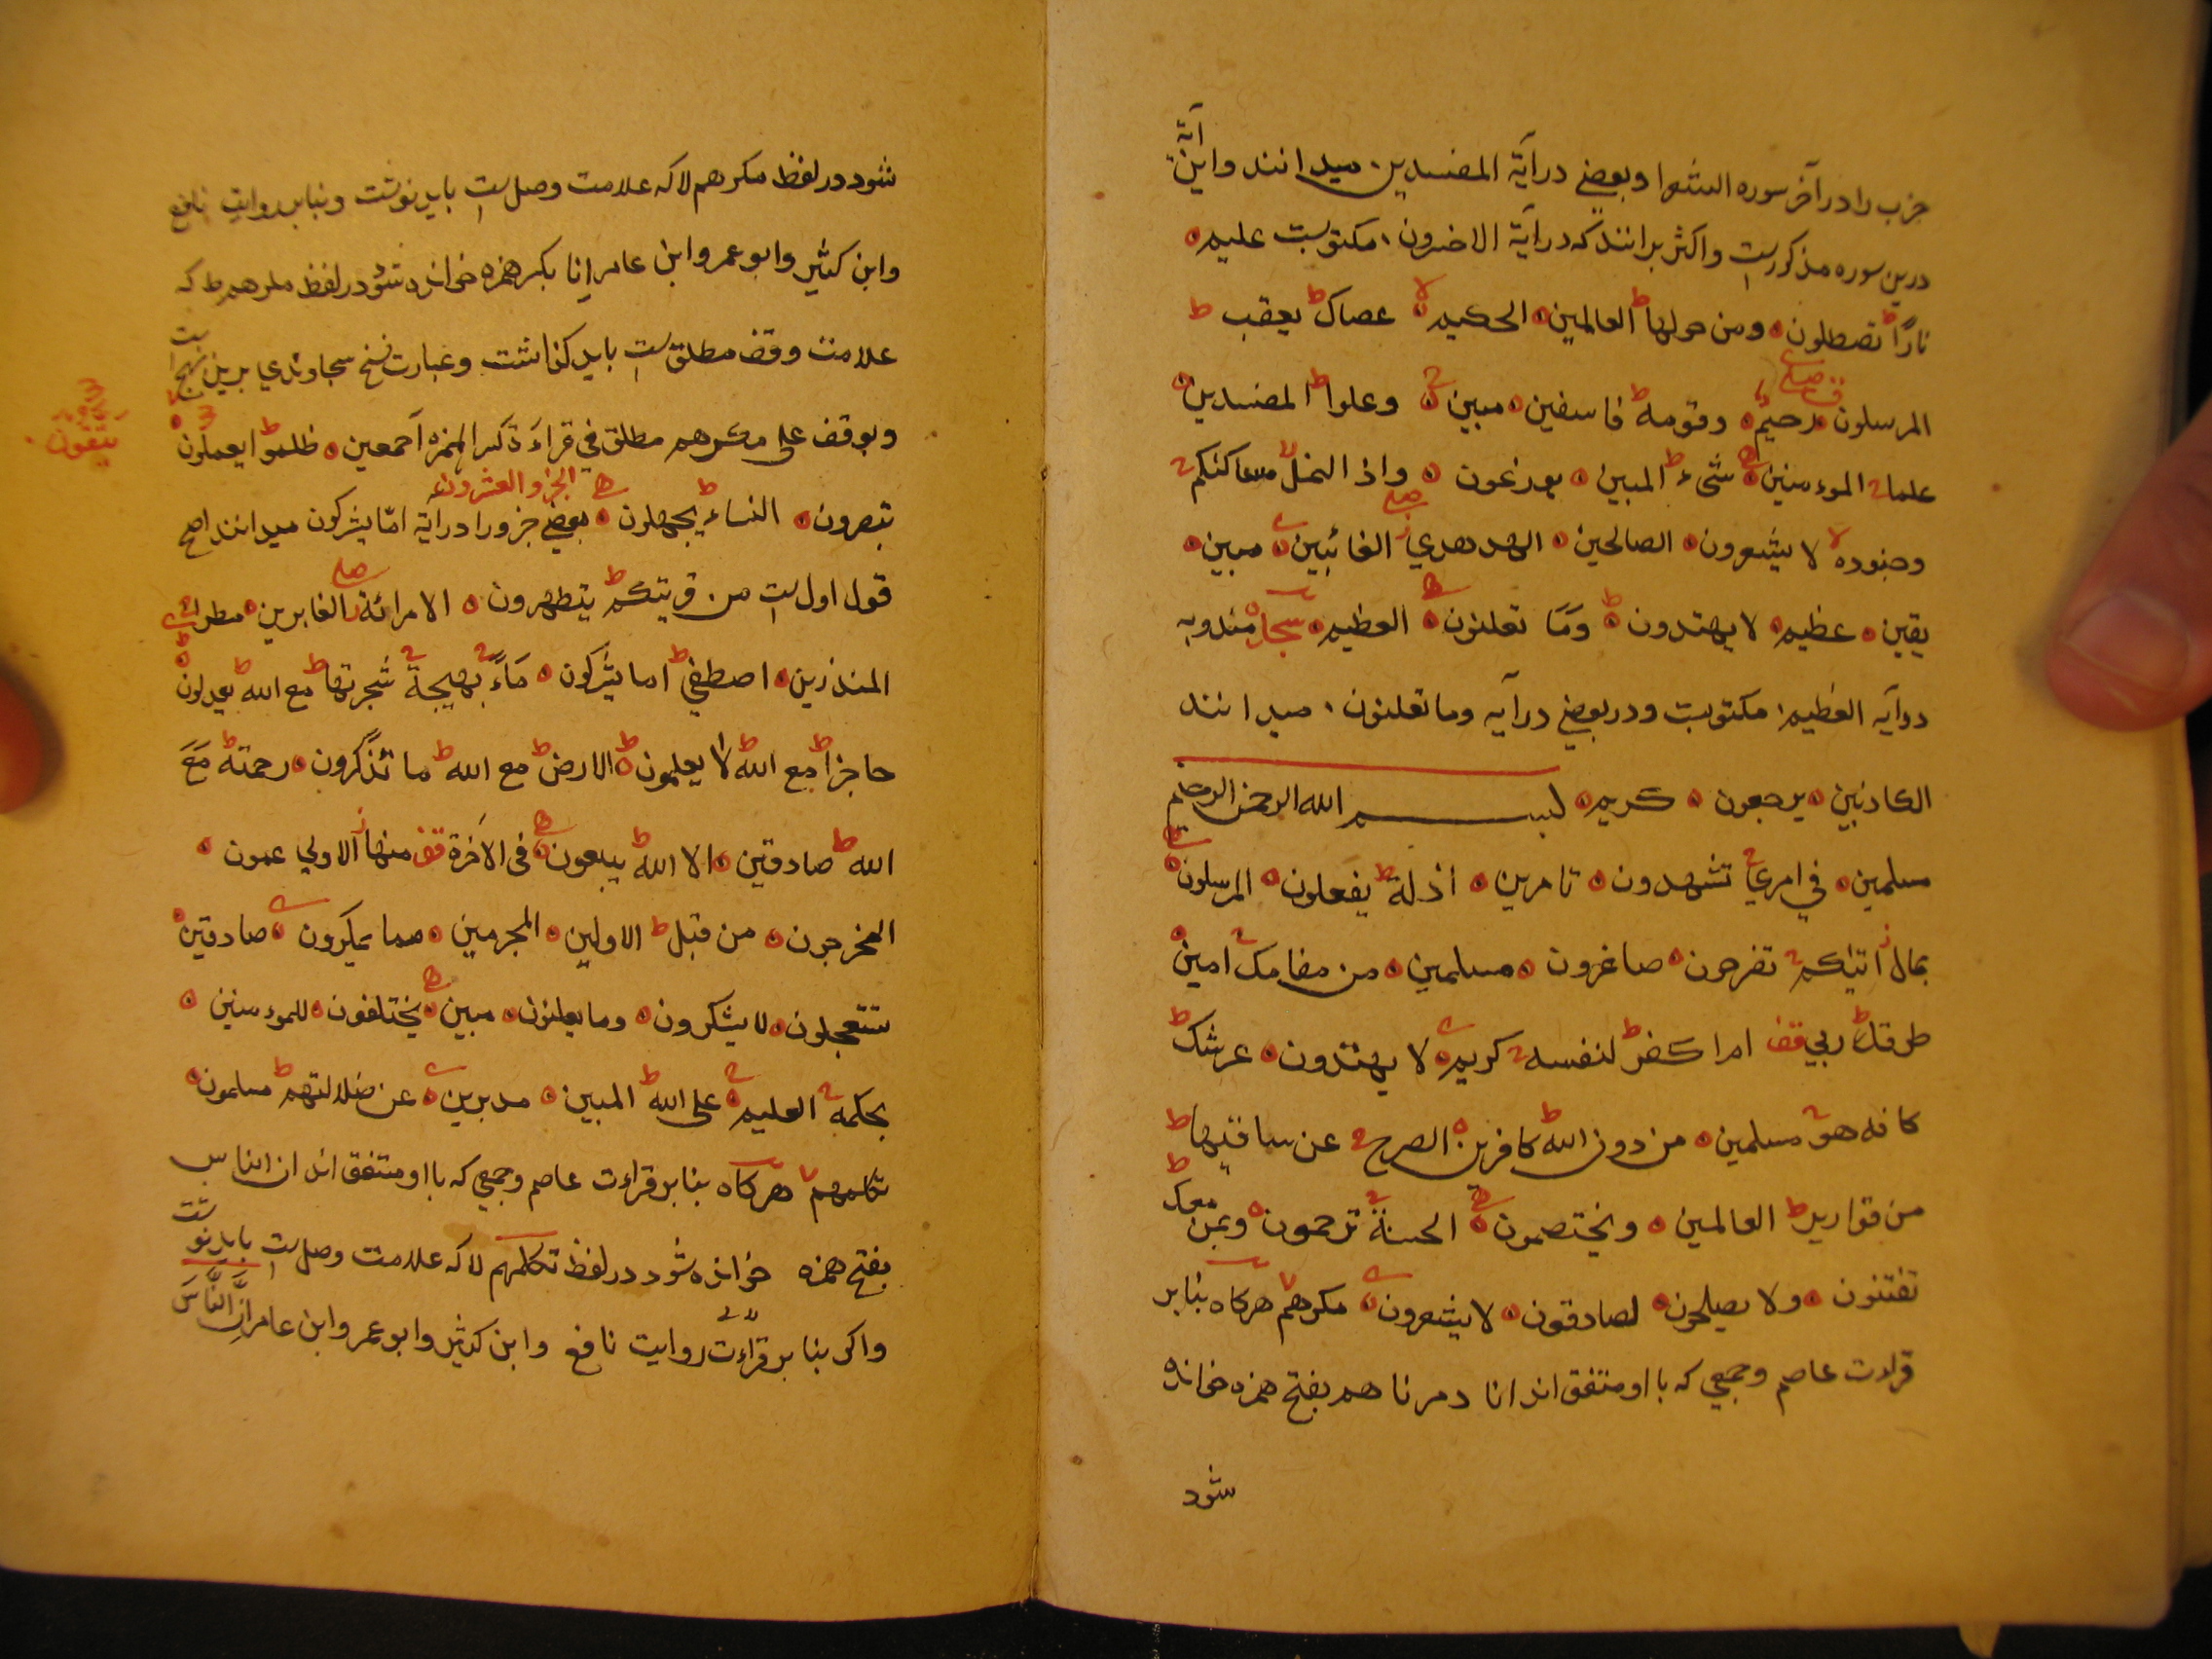 حزب را در آخر سوره الشعرا و بعضی در آیة المفسدین میدانند و این آیة
درین سوره مذکورست و اکثر برانند که در آیة الاخسرون مکتوبست علیم
نارًا ط تصطلون ومن حولها ط العالمین الحکیم لا عصاک ط یعقب ط
المرسلون رحیم وقومه ط فاسقین مبین ج وعلوا ط المفسدین
علما ج الموءمنین شیء ط المبین یوزعون واذا النمل لا مساکنکم ج
وجنوده لا لا یشعرون الصالحین الهدهدی ز صلی الغائبین مبین
یقین عظیم لا یهتدون وَمَا تعلنون العظیم سجده مندوبه
دوآیه العظیم مکتوبست ودر بعضی درآیه وما تعلنون میدانند
الکاذبین یرجعون کریم بسم الله الرحمن الرحیم
مسلمین فی امری ج تشهدون تامرین اذلة ط یفعلون المرسلون
بمال ز اتیکم ج تفرحون صاغرون مسلمین من مقامک ج امین
طرفک ط ربی قف ام اکفر ط لنفسه ج کریم لا یهتدون عرشک ط
کانه هو ج مسلمین من دون الله ط کافرین الصرح ج عن ساقیها ط
من قواریر ط العالمین ویختصمون الحسنة ج ترحمون وبمن معک ط
تفتنون ولا یصلحون لصادقون لا یشعرون مکرهم لا هرکاه بنابر
قراءت عاصم وجمعی که با او متفق اند انا دمرناهم بفتح همزه خوانده
شود
شود در لفظ مکرهم لا که علامت وصل ست باید نوشت وبنابر روایت نافع
وابن کثیر وابو عمر وابن عامر انا بکسر همزه خوانده شود در لفظ مکرهم ط که
علامت وقف مطلق ست باید کذاشت وعبارت نسخ سجاوندی برین نهج است
ویوقف علی مکرهم مطلق فی قراءَ ة کسر الهمزه آجمعین ظلموا ط یعملون
یتقون
تبصرون النساء ط یجهلون الجزو العشرون بعضی جزو را در ایة امّا یشرکون میدانند اصح
قول اول ست من قریتکم ط یتطهرون الا امراته ز صلی الغابرین مطرا ج
المنذرین اصطفی ط اما یشرکون مَاءً بهیجة ج شجرتها ط مع الله ط یعدلون
حاجزا ط مع الله ط لا یعلمون الارض ط مع الله ط ما تذَّکرون رحمته ط مَعَ
الله ط صادقین الا الله ط یبعثون فی الآخرة قف منها ز الاولی عمون
المخرجون من قبل ط الاولین المجرمین مما یمکرون صادقین
تستعجلون لا یشکرون وما یعلنون مبین یختلفون للموءمنین
بحکمه ج العلیم ج علی الله ط المبین مدبرین عن ضلالتهم ط مسلمون
تکلمهم لا هرکاه بنابر قراءت عاصم وجمعی که با او متفق اند ان الناس
بفتح همزه خوانده شود در لفظ تکلمهم لا که علامت وصل ست باید نوشت
واکر بنابر قراءت روایت نافع وابن کثیر وابو عمر وابن عامر اِنَّ النَّاسَ